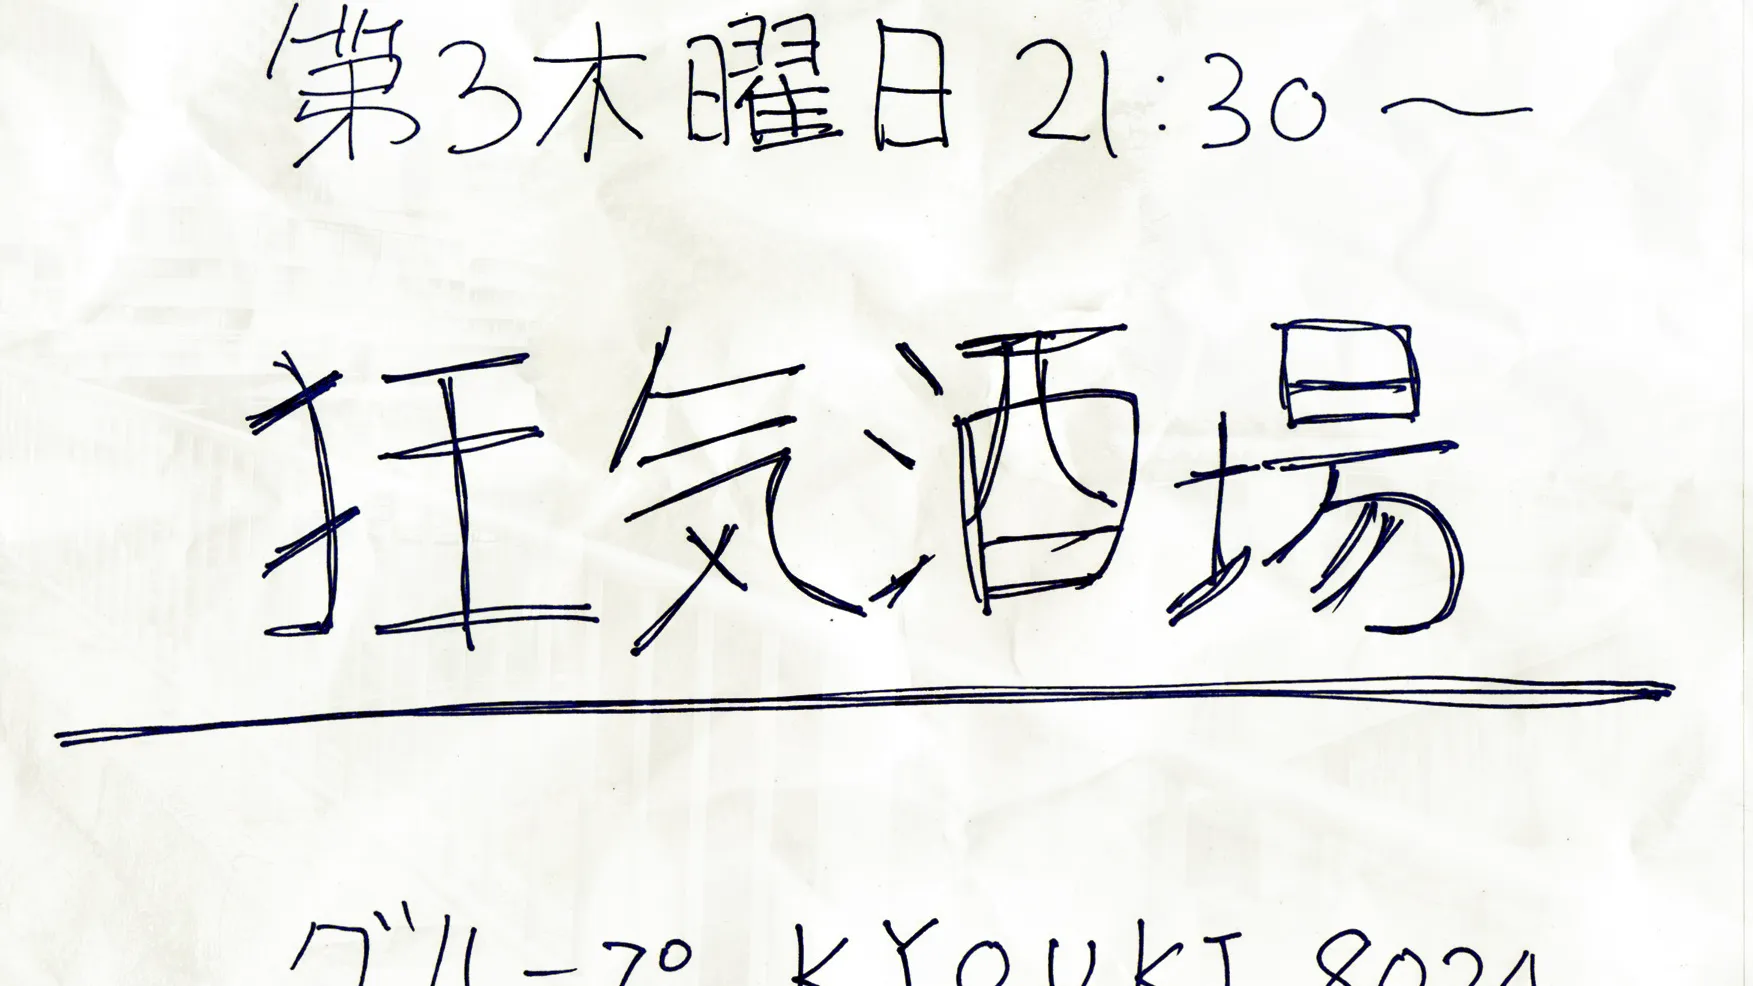 第3木曜日 21:30～
狂気酒場
グループ KYOUKI 8024